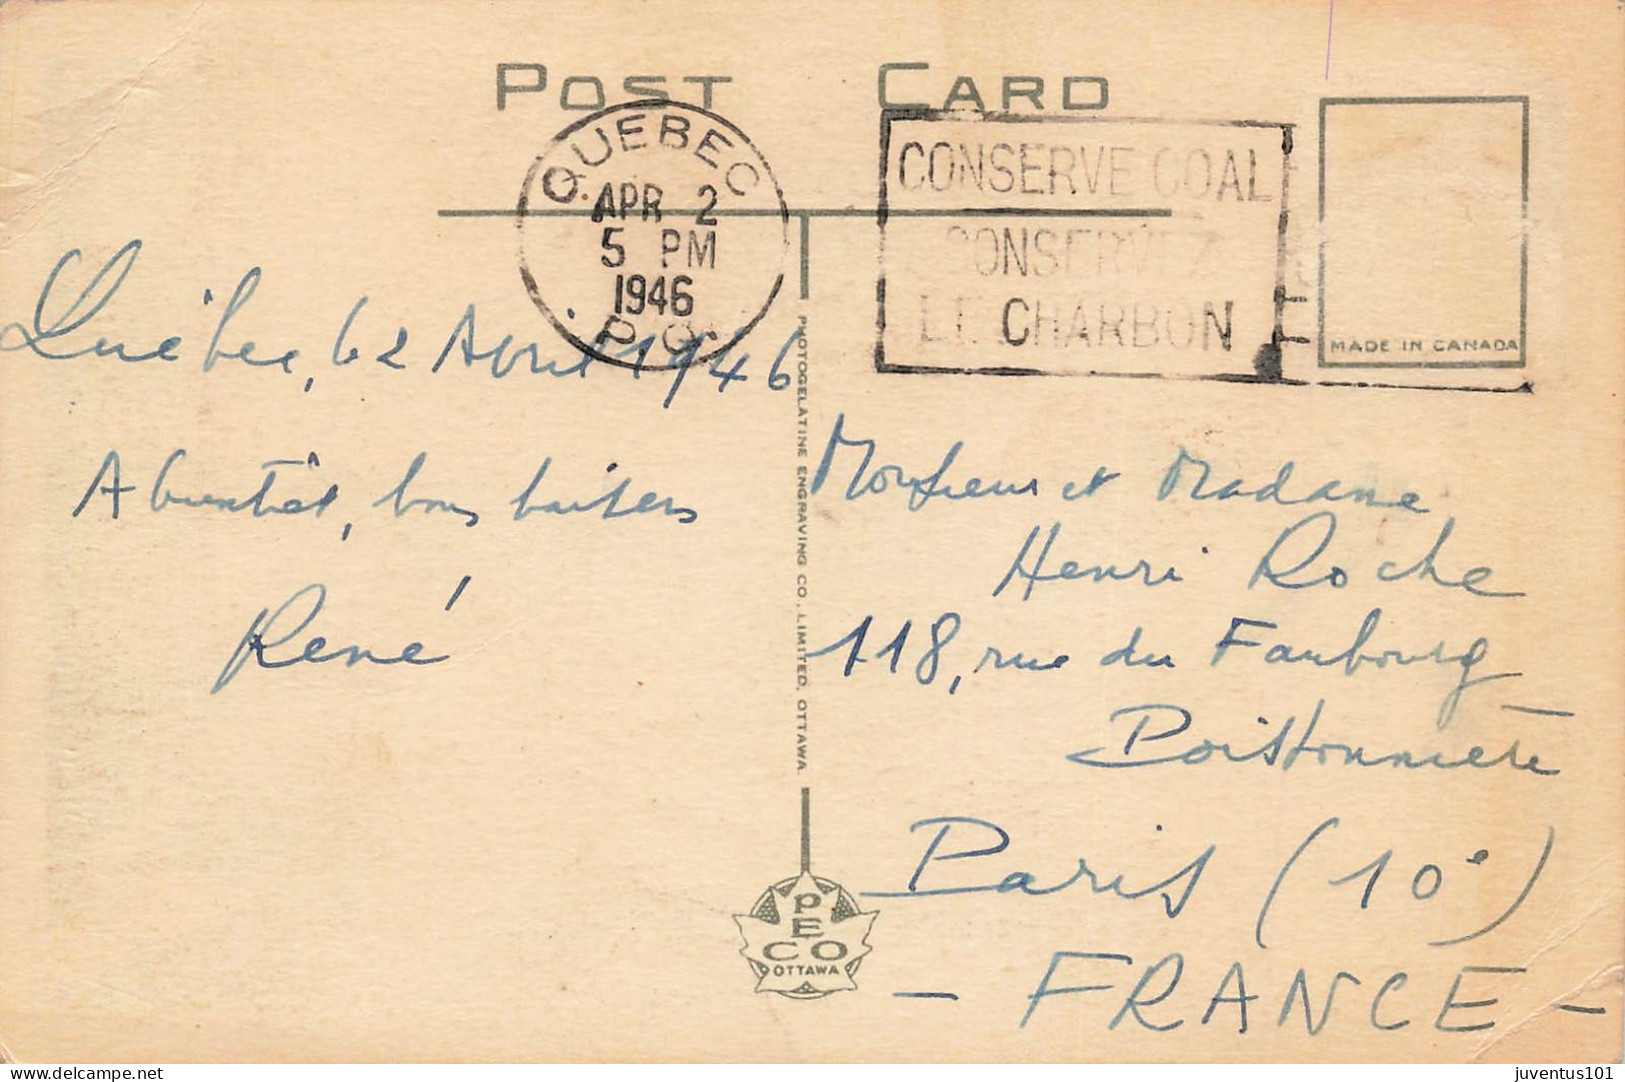 POST CARD
QUEBEC
APR 2
5 PM
1946
P.Q.
CONSERVE COAL
CONSERVEZ
LE CHARBON
MADE IN CANADA
Québec, le 2 Avril 1946
A bientôt, bons baisers
René
PHOTOGELATINE ENGRAVING CO. LIMITED, OTTAWA
Monsieur et Madame
Henri Roche
118, rue du Faubourg
Poissonnière
Paris (10e)
- FRANCE -
PECO
OTTAWA
delcampe.net
juventus101